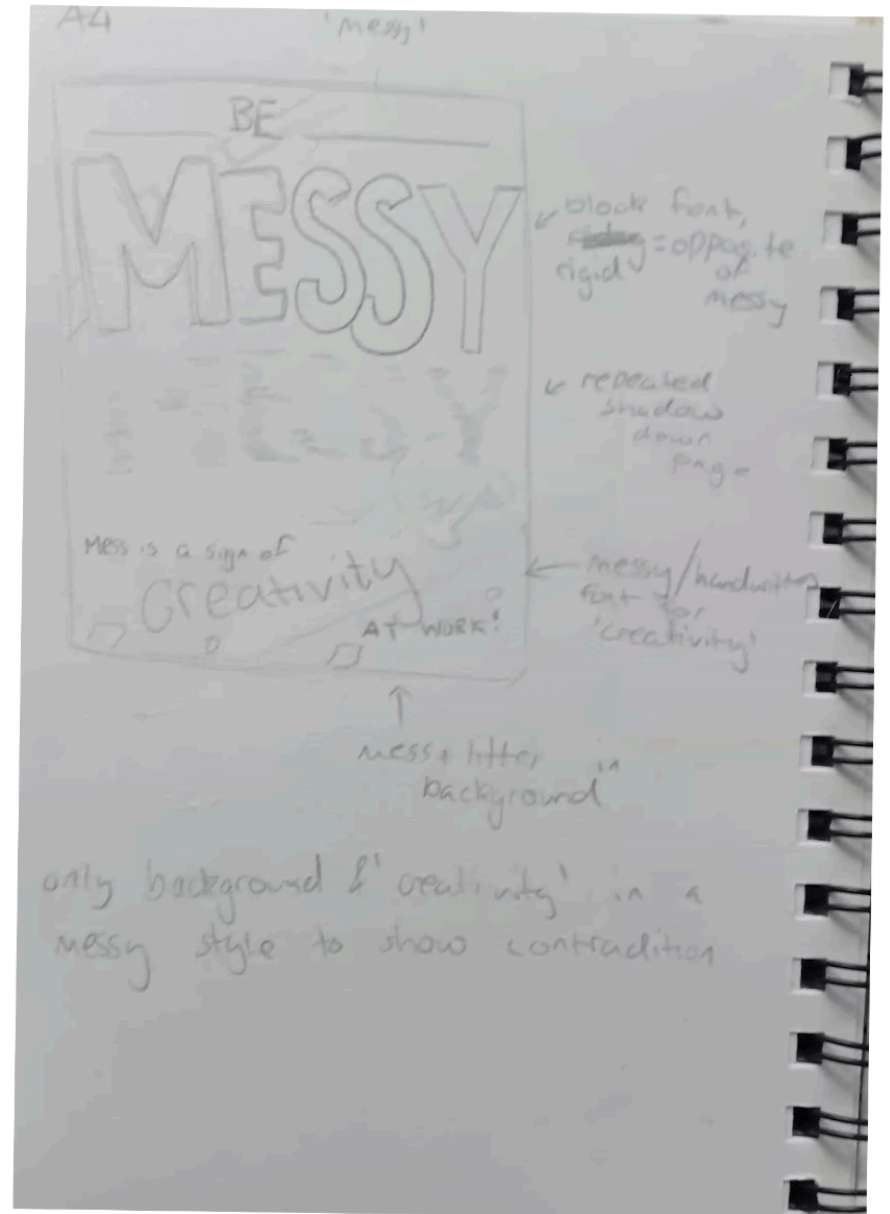 A4
'messy'
BE
MESSY
block font,
rigid = opposite
of
messy
MESSY
repeated
shadow
down
page
Mess is a sign of
Creativity
AT WORK!
messy/handwritten
font for
'creativity'
mess + litter in
background
only background & 'creativity' in a
messy style to show contradition